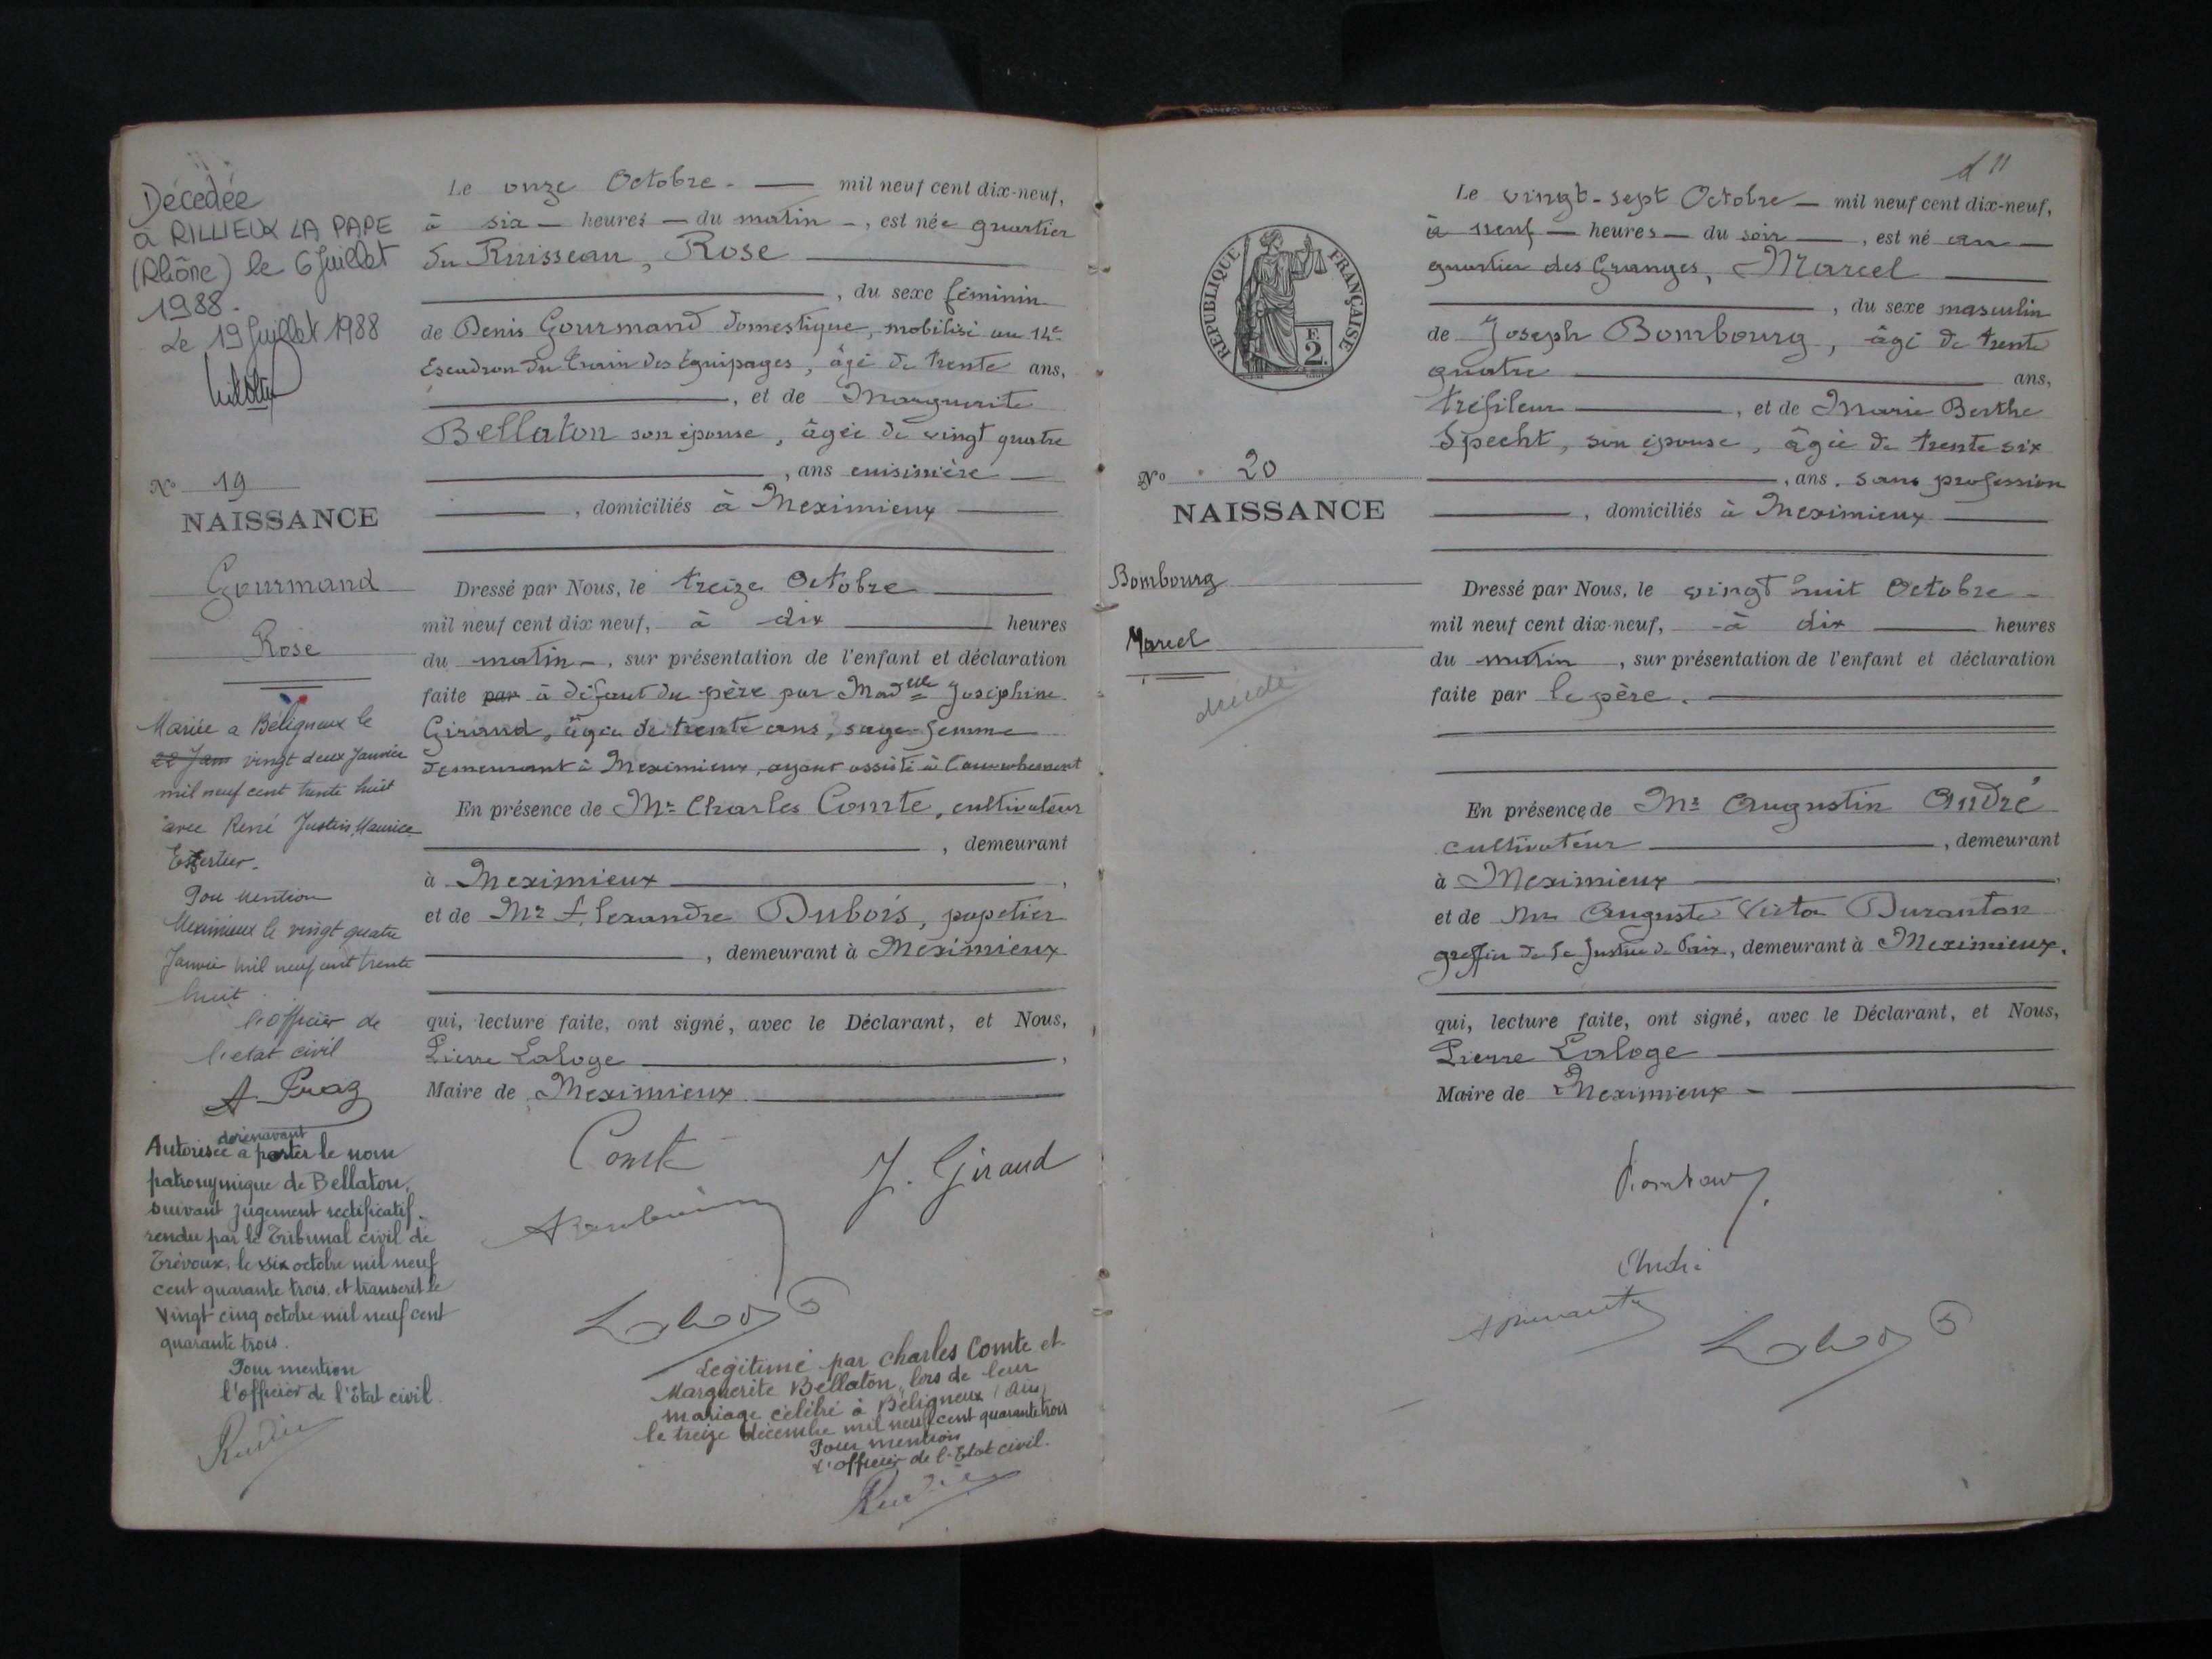 Décédée
à RILLIEUX LA PAPE
(Rhône) le 6 Juillet
1988.
Le 19 Juillet 1988
No 19
NAISSANCE
Gourmand
Rose
Mariée a Béligneux le
22 Jan vingt deux Janvier
mil neuf cent trente huit
avec René Justin Maurice
Pour mention
Meximieux le vingt quatre
Janvier mil neuf cent trente
huit.
l'officier de
l'etat civil
A. Praz
dorénavant
Autorisée à porter le nom
patronymique de Bellaton,
suivant jugement rectificatif
rendu par le Tribunal civil de
Trévoux, le six octobre mil neuf
cent quarante trois, et transcrit le
vingt cinq octobre mil neuf cent
quarante trois.
Pour mention
l'officier de l'Etat civil.
Le onze Octobre. — mil neuf cent dix-neuf,
à six — heures — du matin —, est née quartier
du Ruisseau, Rose
, du sexe féminin
de Denis Gourmand domestique, mobilisé au 14e
Escadron du Train des Equipages, âgé de trente ans,
, et de Marguerite
Bellaton son épouse, âgée de vingt quatre
, ans cuisinière
, domiciliés à Meximieux
Dressé par Nous, le treize Octobre
mil neuf cent dix neuf, à dix heures
du matin —, sur présentation de l'enfant et déclaration
faite par à défaut du père par Madelle Joséphine
Giraud, âgée de trente ans, sage-femme
demeurant à Meximieux, ayant assisté à l'accouchement
En présence de Mr Charles Comte, cultivateur
, demeurant
à Meximieux,
et de Mr Alexandre Dubois, papetier
, demeurant à Meximieux
qui, lecture faite, ont signé, avec le Déclarant, et Nous,
Pierre Laloge,
Maire de Meximieux
Comte
J. Giraud
Légitimé par Charles Comte et
Marguerite Bellaton, lors de leur
mariage célébré à Béligneux (Ain)
le treize décembre mil neuf cent quarante trois
Pour mention
l'officier de l'Etat civil.
d 11
RÉPUBLIQUE FRANÇAISE
F.
2.
No 20
NAISSANCE
Bombourg
Marcel
décédé
Le vingt-sept Octobre — mil neuf cent dix-neuf,
à neuf — heures — du soir —, est né au
quartier des Granges, Marcel
, du sexe masculin
de Joseph Bombourg, âgé de trente
quatre ans,
tréfileur, et de Marie Berthe
Specht, son épouse, âgée de trente six
, ans. sans profession
, domiciliés à Meximieux
Dressé par Nous, le vingt huit Octobre —
mil neuf cent dix-neuf, — à dix heures
du matin, sur présentation de l'enfant et déclaration
faite par le père.
En présence de Mr Augustin André
cultivateur, demeurant
à Meximieux,
et de Mr Auguste Victor Duranton
greffier de la Justice de Paix, demeurant à Meximieux.
qui, lecture faite, ont signé, avec le Déclarant, et Nous,
Pierre Laloge
Maire de Meximieux —
André